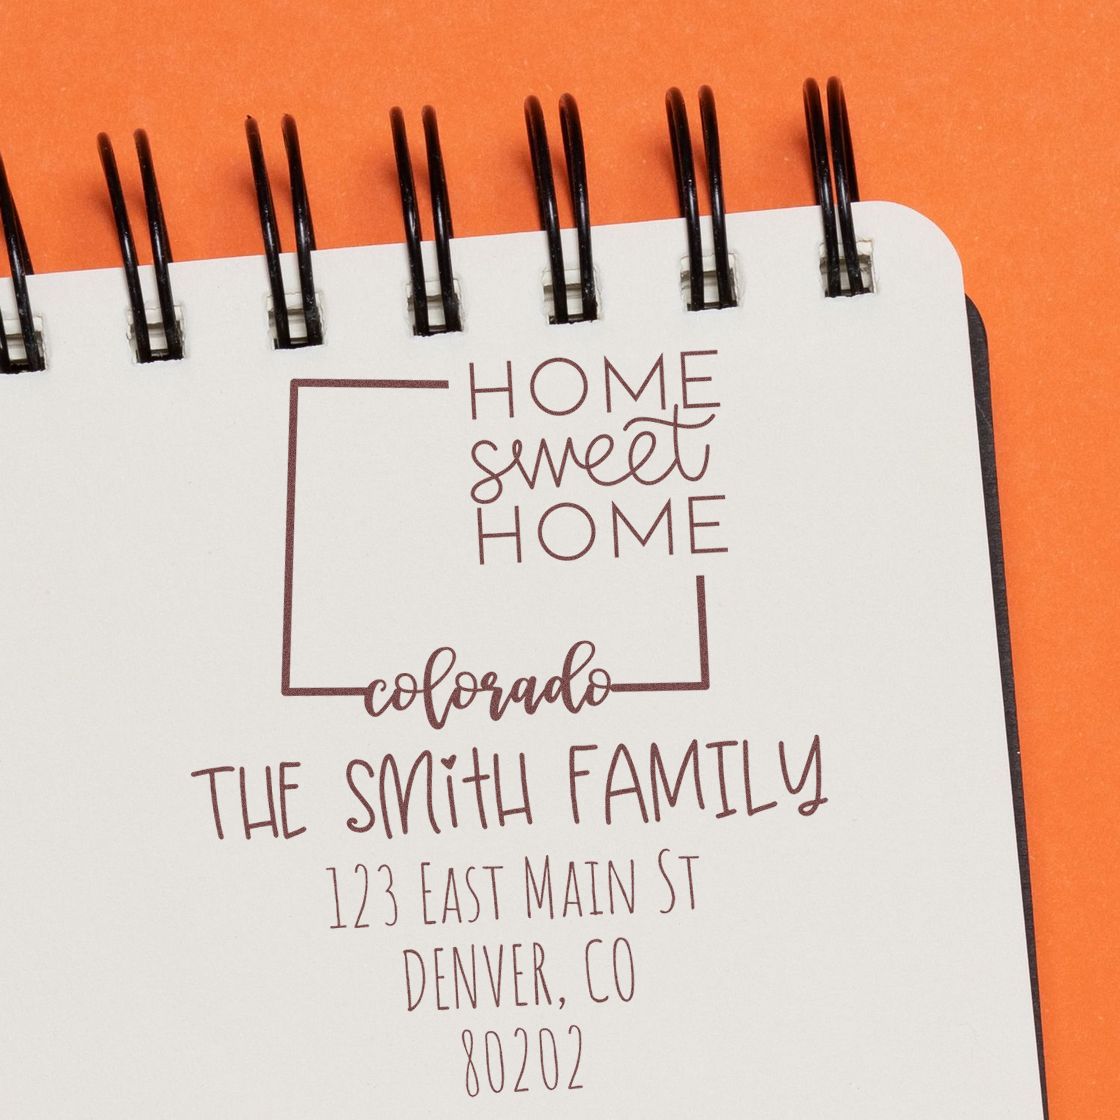 HOME
sweet
HOME
colorado
THE SMiTH FAMILY
123 EAST MAIN ST
DENVER, CO
80202